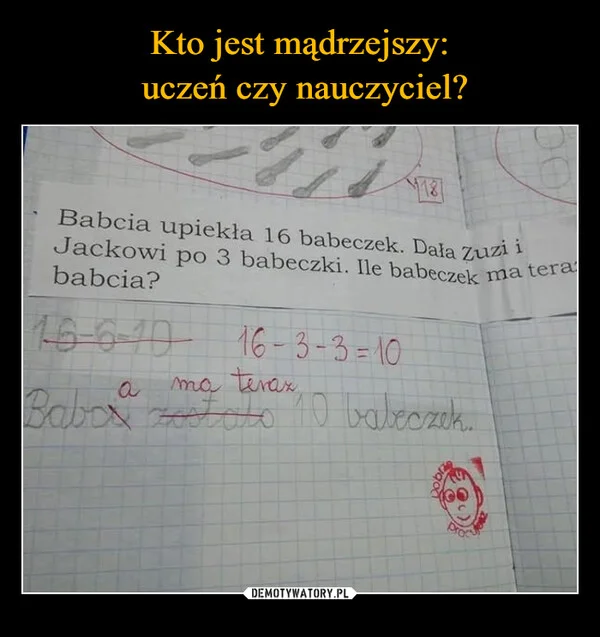 Kto jest mądrzejszy:
uczeń czy nauczyciel?
18
Babcia upiekła 16 babeczek. Dała Zuzi i
Jackowi po 3 babeczki. Ile babeczek ma tera
babcia?
16-6=10 16-3-3=10
a ma teraz
Babci zostało 10 babeczek.
dobrze
pracujesz
DEMOTYWATORY.PL